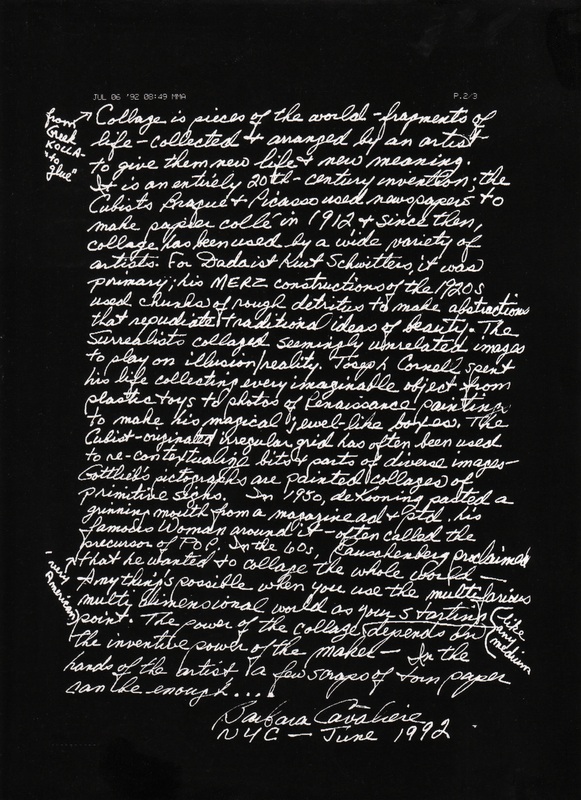 JUL 06 '92 08:49 MMA P.2/3
from Greek KOLLA- "to glue"
Collage is pieces of the world - fragments of
life - collected & arranged by an artist
to give them new life & new meaning.
It is an entirely 20th-century invention; the
Cubists Braque & Picasso used newspapers to
make papier collé in 1912 & since then,
collage has been used by a wide variety of
artists. For Dadaist Kurt Schwitters, it was
primary; his MERZ constructions of the 1920s
used chunks of rough detritus to make abstractions
that repudiate traditional ideas of beauty. The
Surrealists collaged seemingly unrelated images
to play on illusion/reality. Joseph Cornell spent
his life collecting every imaginable object from
plastic toys to photos of Renaissance paintings
to make his magical jewel-like boxes. The
Cubist-originated irregular grid has often been used
to re-contextualize bits & parts of diverse images -
Gottlieb's pictographs are painted collages of
primitive signs. In 1950, deKooning pasted a
grinning mouth from a magazine ad & ptd. his
famous Woman around it - often called the
precursor of Pop. In the 60s, Rauschenberg proclaimed
that he wanted to collage the whole world -
- very American
Anything's possible when you use the multifarious
multi dimensional world as your starting
point. The power of the collage depends on (like any medium)
the inventive power of the maker - In the
hands of the artist, a few scraps of torn paper
can be enough....
Barbara Cavaliere
NYC - June 1992